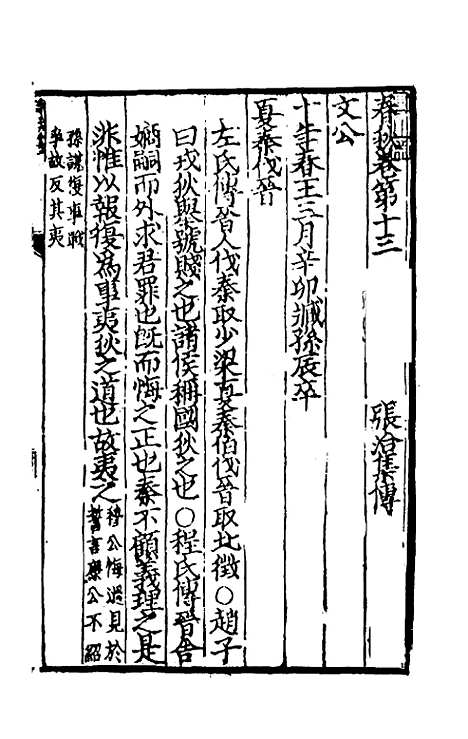 春秋卷第十三
張洽集傳
文公
十年春王三月辛卯臧孫辰卒
夏秦伐晉
左氏傳晉人伐秦取少梁夏秦伯伐晉取北徵○趙子
曰戎狄舉號賤之也諸侯稱國狄之也○程氏傳晉舍
嫡嗣而外求君罪也旣而悔之正也秦不顧義理之是
非惟以報復爲事夷狄之道也故夷之
穆公悔過見於
誓言康公不紹
孫謀復事戰
爭故反其夷